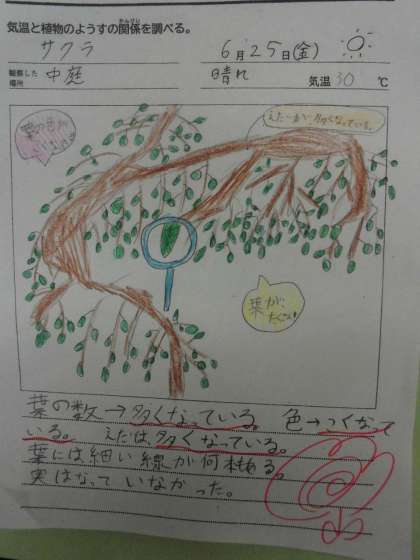 気温と植物のようすの関係を調べる。
かんけい
サクラ
6月25日(金)
観察した場所
中庭
晴れ
気温 30 ℃
葉の色がこくなった
えだが多くなっている。
葉がたくさん!
葉の数→多くなっている。 色→こくなって
いる。 えだは、多くなっている。
葉には細い線が何本もある。
実はなっていなかった。